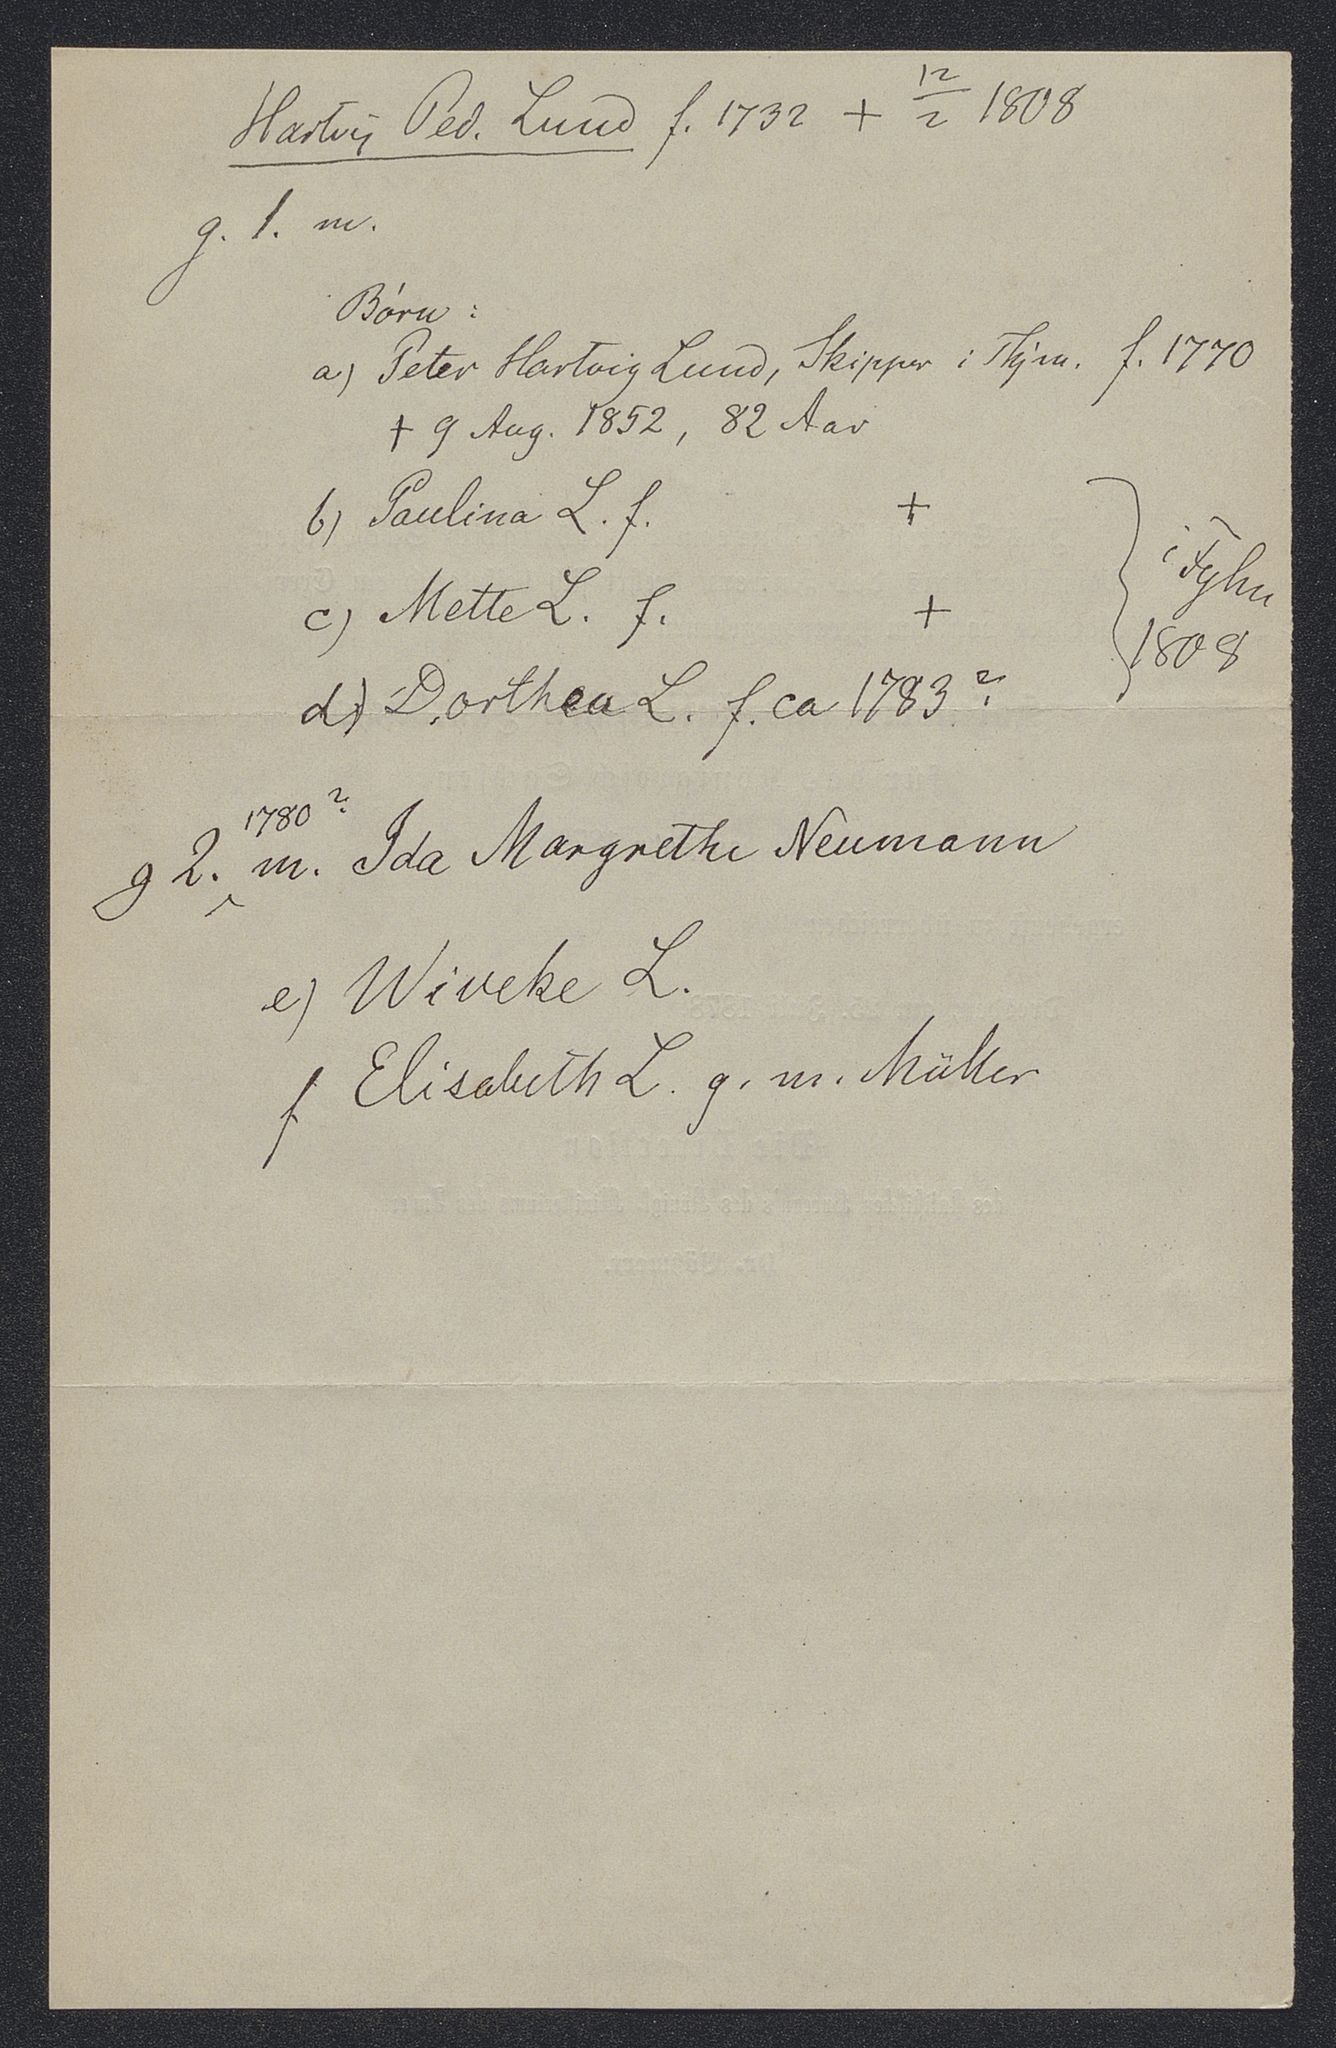 Hartvig Ped. Lund f. 1732 + 12/2 1808
g. 1. m.
Børn:
a) Peter Hartvig Lund, Skipper i Thjm. f. 1770
+ 9 Aug. 1852, 82 Aar
b) Paulina L. f. +
c) Mette L. f. +
d) Dorthea L. f. ca 1783?
i Tyhn
1808
g 2. 1780? m. Ida Margrethe Neumann
e) Wiveke L.
f Elisabeth L. g. m. Müller